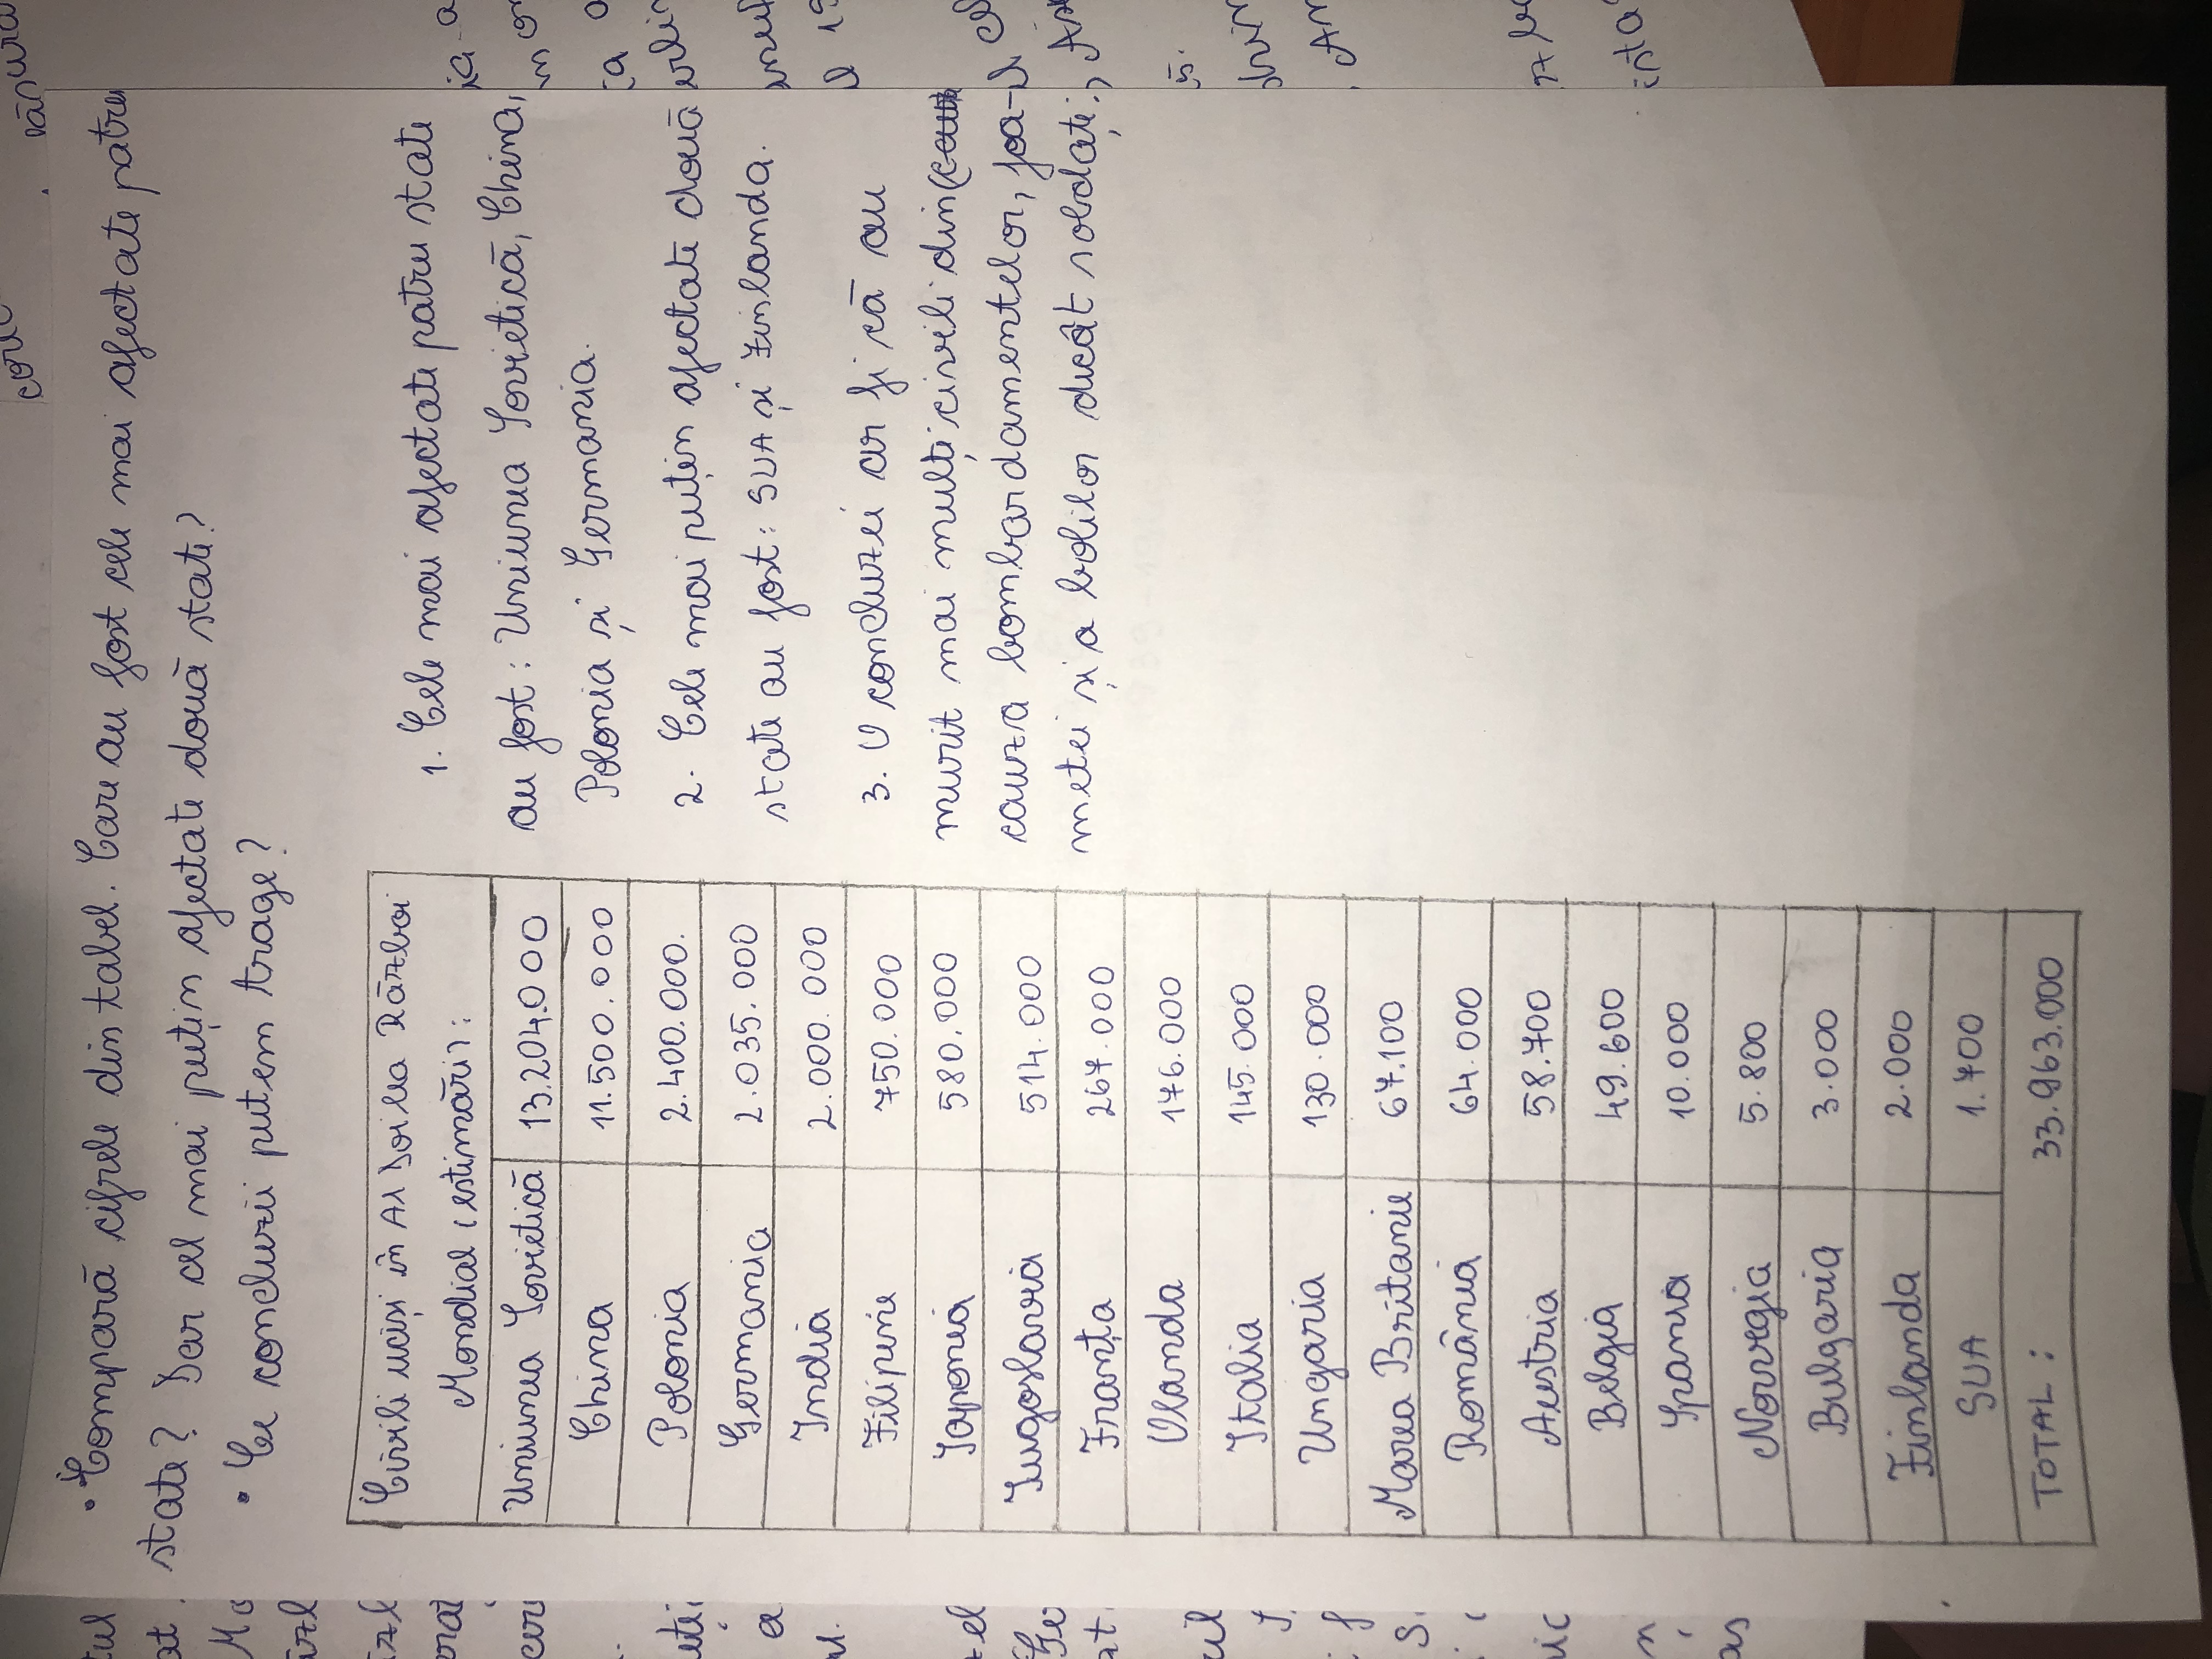 • Compară cifrele din tabel. Care au fost cele mai afectate patru
state? Dar cel mai puțin afectate două state?
• Ce concluzii putem trage?
Civili uciși în Al Doilea Război
Mondial (estimări):
Uniunea Sovietică 13.204.000
China 11.500.000
Polonia 2.400.000.
Germania 2.035.000
India 2.000.000
Filipine 750.000
Japonia 580.000
Iugoslavia 514.000
Franța 267.000
Olanda 176.000
Italia 145.000
Ungaria 130.000
Marea Britanie 67.100
România 64.000
Austria 58.700
Belgia 49.600
Spania 10.000
Norvegia 5.800
Bulgaria 3.000
Finlanda 2.000
SUA 1.700
TOTAL: 33.963.000
1. Cele mai afectate patru state
au fost: Uniunea Sovietică, China,
Polonia și Germania.
2. Cele mai puțin afectate două
state au fost: SUA și Finlanda.
3. O concluzei ar fi că au
murit mai mulți civili din
cauza bombardamentelor, foa-
metei și a bolilor decât soldați.